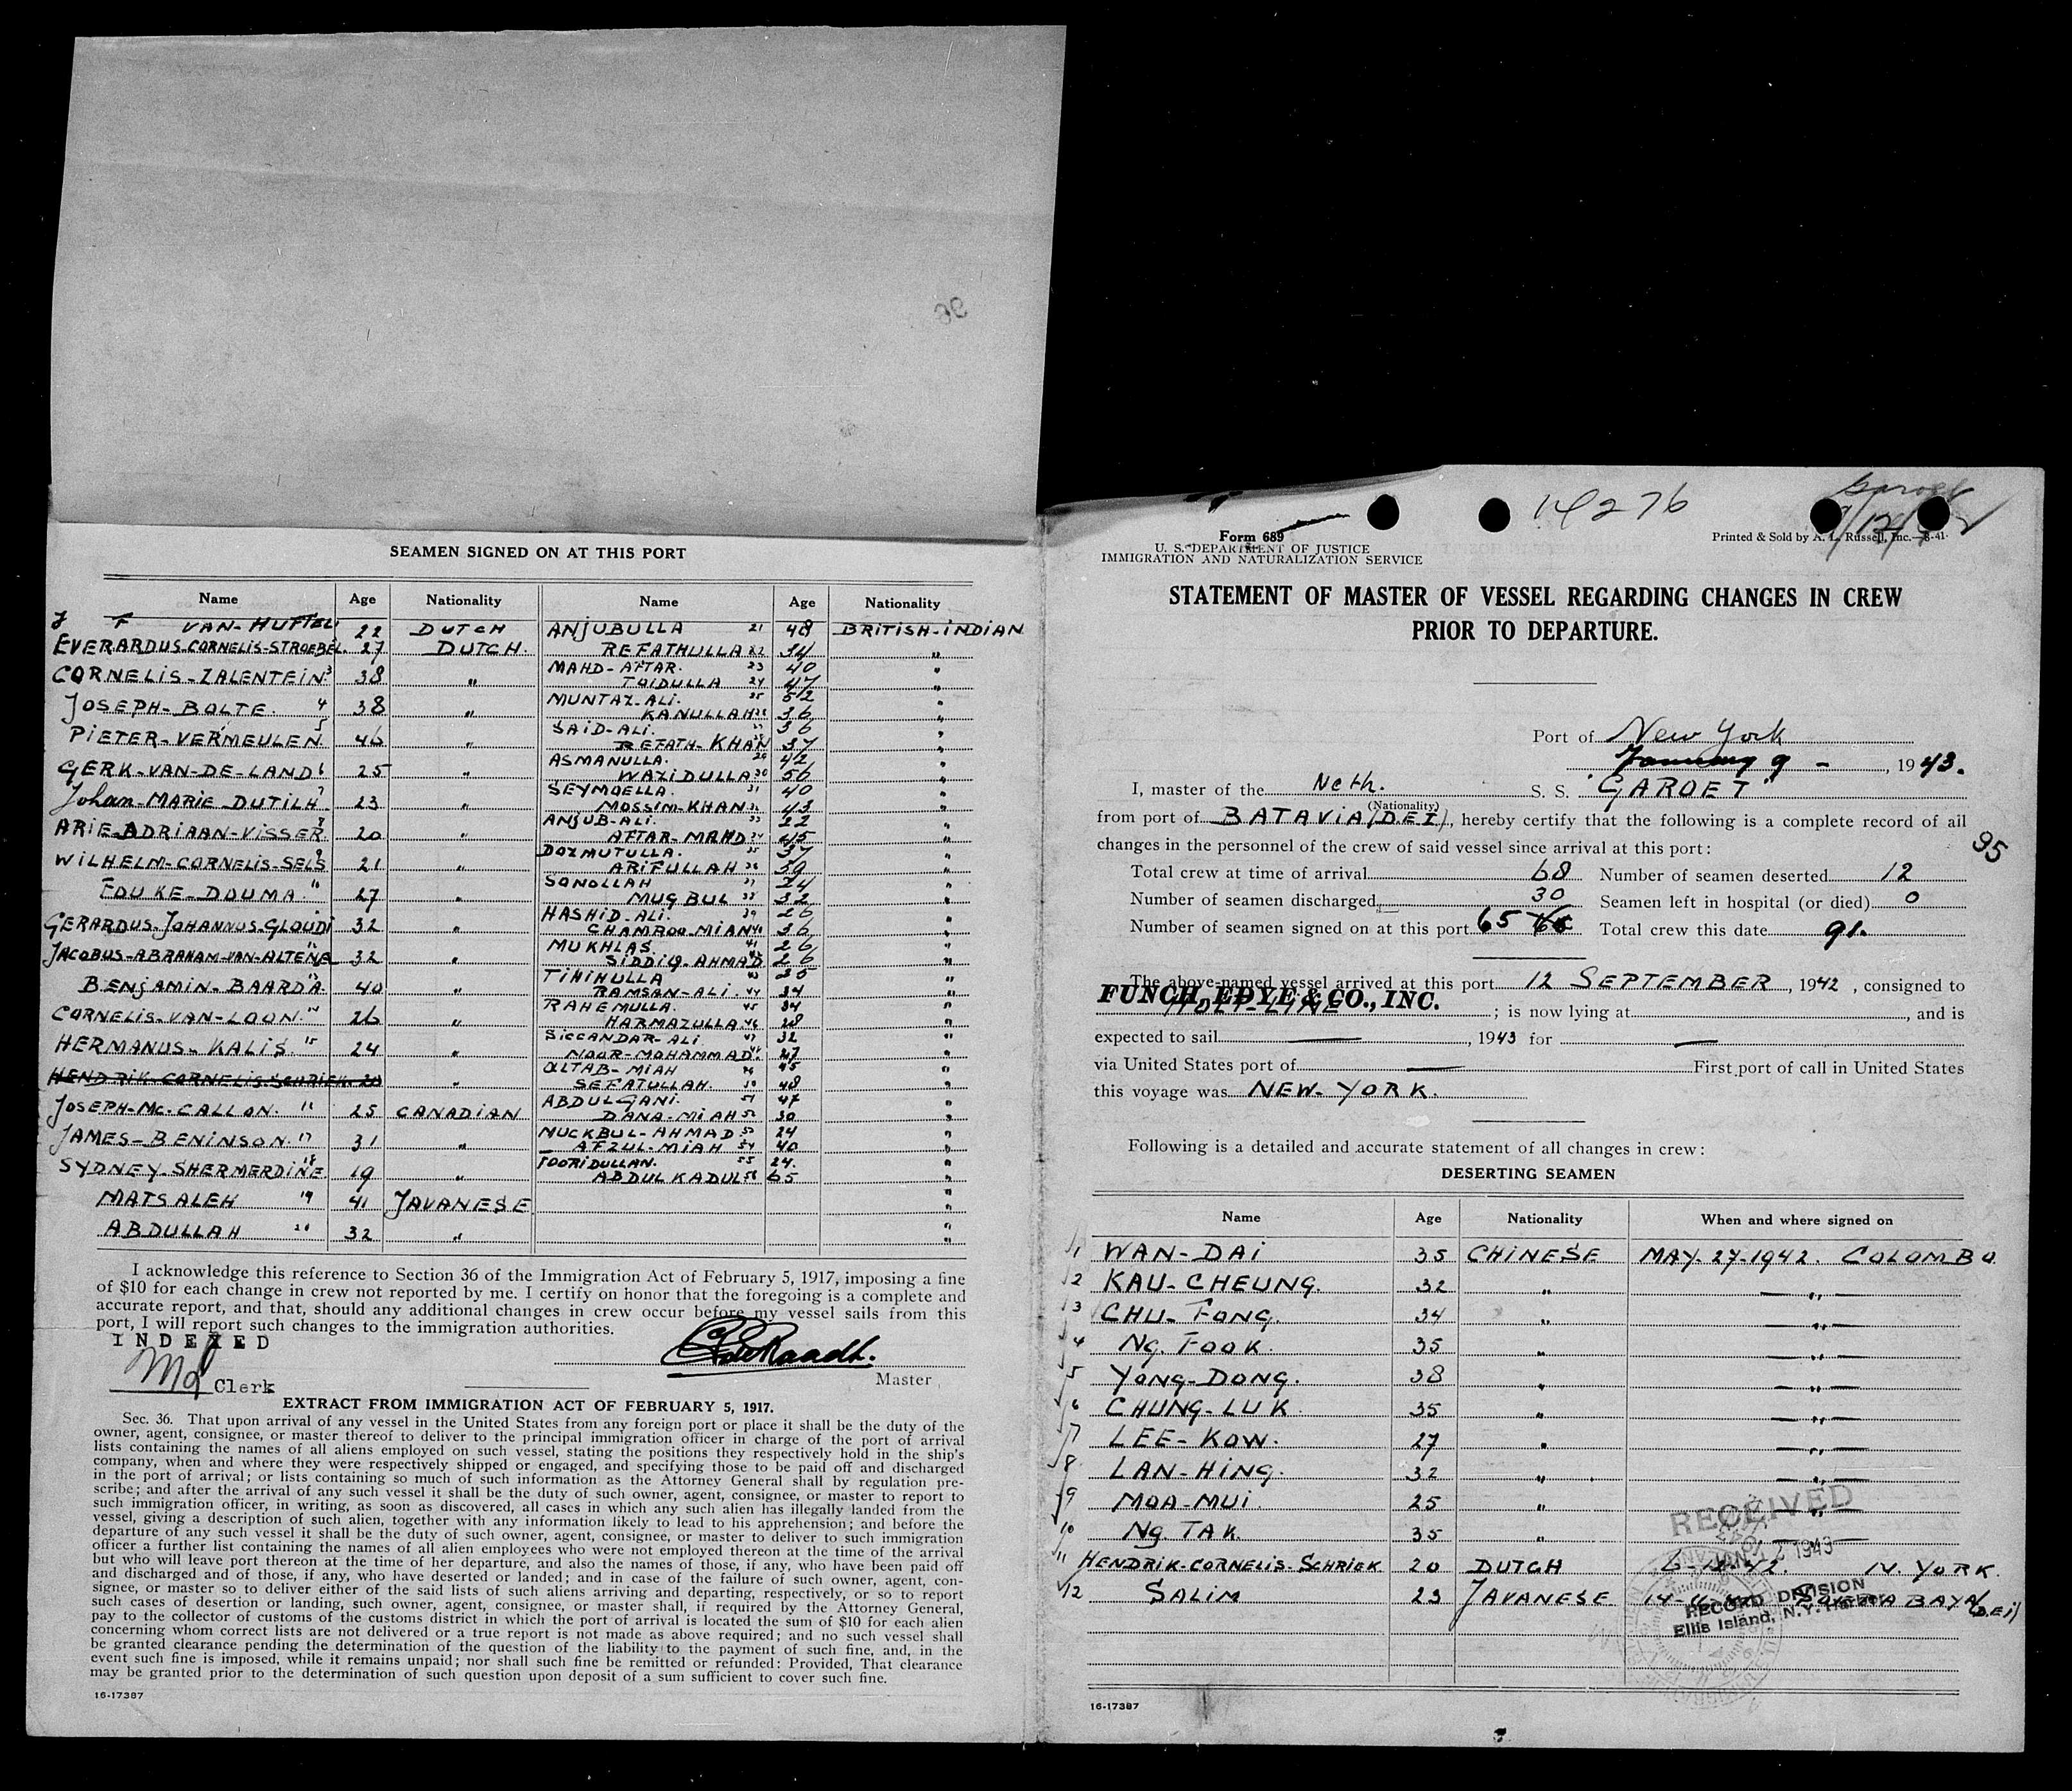 SEAMEN SIGNED ON AT THIS PORT
Name Age Nationality Name Age Nationality
VAN-HUFFEL 22 DUTCH
EVERARDUS-CORNELIS-STROEBEL. 27 DUTCH.
CORNELIS-ZALENTEIN 3 38 "
JOSEPH-BOLTE. 4 38 "
PIETER-VERMEULEN. 5 46 "
GERK-VAN-DE-LAND 6 25 "
Johan-MARIE DUTILH 7 23 "
ARIE-ADRIAAN-VISSER. 8 20 "
WILHELM-CORNELIS-SELS 9 21 "
FOUKE-DOUMA. 10 27 "
GERARDUS-JOHANNUS-GLOUDI 32 "
JACOBUS-ABRAHAM-VAN-ALTENA 32 "
BENJAMIN-BAARDA. 13 40 "
CORNELIS-VAN-LOON. 14 26 "
HERMANUS-KALIS. 15 24 "
HENDRIK-CORNELIS-SCHRIEK 20 "
JOSEPH-MC.CALLON. 16 25 CANADIAN
JAMES-BENINSON. 17 31 "
SYDNEY-SHERMERDINE. 18 19 "
MATSALEH 19 41 JAVANESE
ABDULLAH 20 32 "
ANJUBULLA 21 48 BRITISH-INDIAN
REFATHULLA 22 34 "
MAHD-AFTAR. 23 40
TOIDULLA 24 47 "
MUNTAZ-ALI. 25 52
KANULLAH 26 36 "
SAID-ALI. 27 36
REFATH-KHAN 37 "
ASMANULLA. 29 42
WAZIDULLA 30 56 "
SEYMOELLA. 31 40
MOSSIM-KHAN 32 43 "
ANJUB-ALI. 33 22
AFTAR-MAHD 34 45 "
DOZMUTULLA. 35 37
ARIFULLAH 36 50 "
SONOLLAH 37 24
MUGBUL 38 32 "
HASHID-ALI. 39 26
CHAMROO-MIAN 40 36 "
MUKHLAS. 41 26
SIDDIQ-AHMAD 26 "
TIHIHULLA 43 35
RAMSAN-ALI. 44 34 "
RAHEMULLA. 45 34
HARMAZULLA. 46 28 "
SICCANDAR-ALI 47 32
NOOR-MOHAMMAD. 27 "
ALTAB-MIAH 49 45
SEFATULLAH. 50 48 "
ABDULGANI. 51 47
DANA-MIAH 52 30 "
MUCKBUL-AHMAD 53 24
AFZUL-MIAH 54 40 "
FOORIDULLAN. 55 24.
ABDUL KADUL 56 65 "
I acknowledge this reference to Section 36 of the Immigration Act of February 5, 1917, imposing a fine
of $10 for each change in crew not reported by me. I certify on honor that the foregoing is a complete and
accurate report, and that, should any additional changes in crew occur before my vessel sails from this
port, I will report such changes to the immigration authorities.
INDEXED
Clerk
Master
EXTRACT FROM IMMIGRATION ACT OF FEBRUARY 5, 1917.
Sec. 36. That upon arrival of any vessel in the United States from any foreign port or place it shall be the duty of the
owner, agent, consignee, or master thereof to deliver to the principal immigration officer in charge of the port of arrival
lists containing the names of all aliens employed on such vessel, stating the positions they respectively hold in the ship's
company, when and where they were respectively shipped or engaged, and specifying those to be paid off and discharged
in the port of arrival; or lists containing so much of such information as the Attorney General shall by regulation pre-
scribe; and after the arrival of any such vessel it shall be the duty of such owner, agent, consignee, or master to report to
such immigration officer, in writing, as soon as discovered, all cases in which any such alien has illegally landed from the
vessel, giving a description of such alien, together with any information likely to lead to his apprehension; and before the
departure of any such vessel it shall be the duty of such owner, agent, consignee, or master to deliver to such immigration
officer a further list containing the names of all alien employees who were not employed thereon at the time of the arrival
but who will leave port thereon at the time of her departure, and also the names of those, if any, who have been paid off
and discharged and of those, if any, who have deserted or landed; and in case of the failure of such owner, agent, con-
signee, or master so to deliver either of the said lists of such aliens arriving and departing, respectively, or so to report
such cases of desertion or landing, such owner, agent, consignee, or master shall, if required by the Attorney General,
pay to the collector of customs of the customs district in which the port of arrival is located the sum of $10 for each alien
concerning whom correct lists are not delivered or a true report is not made as above required; and no such vessel shall
be granted clearance pending the determination of the question of the liability to the payment of such fine, and, in the
event such fine is imposed, while it remains unpaid; nor shall such fine be remitted or refunded: Provided, That clearance
may be granted prior to the determination of such question upon deposit of a sum sufficient to cover such fine.
16-17387
14276
Form 689
U. S. DEPARTMENT OF JUSTICE
IMMIGRATION AND NATURALIZATION SERVICE
Printed & Sold by A. L. Russell, Inc.—8-41
STATEMENT OF MASTER OF VESSEL REGARDING CHANGES IN CREW
PRIOR TO DEPARTURE.
Port of New York
January 9 - , 1943.
I, master of the Neth. S. S. GAROET
(Nationality)
from port of BATAVIA (D.E.I), hereby certify that the following is a complete record of all
changes in the personnel of the crew of said vessel since arrival at this port:
95
Total crew at time of arrival 68 Number of seamen deserted 12
Number of seamen discharged 30 Seamen left in hospital (or died) 0
Number of seamen signed on at this port 65 Total crew this date 91.
The above-named vessel arrived at this port 12 SEPTEMBER, 1942, consigned to
FUNCH, EDYE & CO., INC. HOLT-LINE; is now lying at , and is
expected to sail — , 1943 for —
via United States port of — First port of call in United States
this voyage was NEW-YORK.
Following is a detailed and accurate statement of all changes in crew:
DESERTING SEAMEN
Name Age Nationality When and where signed on
1 WAN-DAI 35 CHINESE MAY-27-1942. COLOMBO
2 KAU-CHEUNG. 32 " — " —
3 CHU-FONG. 34 " — " —
4 NG. FOOK. 35 " — " —
5 YONG-DONG. 38 " — " —
6 CHUNG-LUK 35 " — " —
7 LEE-KOW. 27 " — " —
8 LAN-HING. 32 " — " —
9 MOA-MUI. 25 " — " —
10 NG TAK. 35 " — " —
11 HENDRIK-CORNELIS-SCHRIEK 20 DUTCH N. YORK.
12 SALIM 23 JAVANESE SOERABAYA (D.E.I)
RECEIVED
1943
RECORD DIVISION
Ellis Island, N.Y. Harbor
16-17387